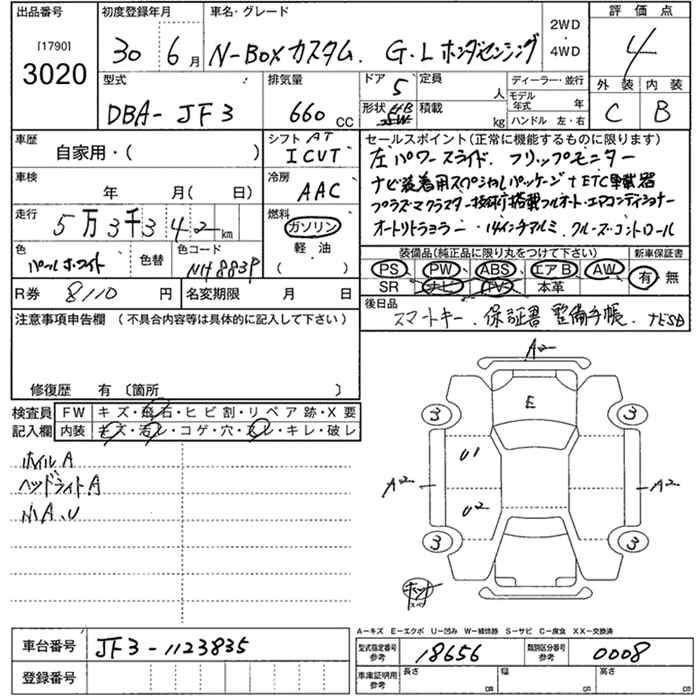 出品番号 初度登録年月 車名・グレード 2WD・4WD 評価点
[1790] 3020 30 6月 N-BOXカスタム. G・Lホンダセンシング 4
外装 内装
C B
型式 排気量 ドア 定員 ディーラー・並行
DBA-JF3 660 CC 5 人 モデル年式 年
形状 積載 kg ハンドル 左・右
車歴 シフト AT セールスポイント(正常に機能するものに限ります)
自家用・( ) ICVT 左パワースライド. フリップモニター
車検 冷房 ナビ装着用スペシャルパッケージ+ETC車載器
年 月( 日) AAC プラズマクラスター技術搭載フルオート・エアコンディショナー
走行 燃料 オートリトラミラー・14インチアルミ. クルーズ・コントロール
5万3千342km ガソリン 軽・油 ( )
色 色替 色コード 装備品(純正品に限り丸をつけて下さい) 新車保証書
パールホワイト NH883P PS PW ABS エアB AW 有 無
SR ナビ TV 本革
R券 8110円 名変期限 月 日 後日品
スマートキー. 保証書 整備手帳. ナビSD
注意事項申告欄 (不具合内容等は具体的に記入して下さい)
修復歴 有〔箇所 〕
検査員 FW キズ・飛石・ヒビ割・リペア跡・X要
記入欄 内装 キズ・汚レ・コゲ・穴・スレ・キレ・破レ
ホイルA
ヘッドライトA
小A、U
A2
E
3 3
U1
A2 A2
U2
3 3
A−キズ E−エクボ U−凹み W−補修跡 S−サビ C−腐食 XX−交換済
車台番号 JF3-1123835 型式指定番号 参考 18656 類別区分番号 参考 0008
登録番号 車庫証明用 参考 長さ cm 幅 cm 高さ cm